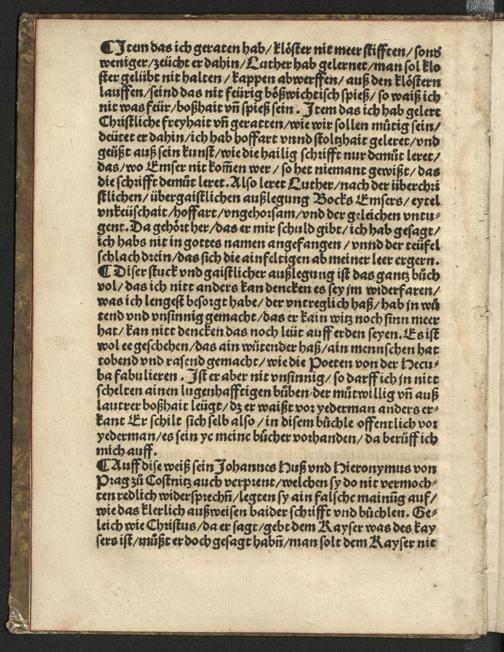 ¶ Item das ich geraten hab/ klöster nit meer stifften/ sond
weniger/ zeücht er dahin/ Luther hab gelernet/ man sol klo
ster gelübt nit halten/ kappen abwerffen/ auß den klöstern
lauffen/ seind das nit feürig bößwichtisch spieß/ so waiß ich
nit was feür/ boßhait vñ spieß sein. Item das ich hab gelert
Christliche freyhait vñ geratten/ wie wir sollen mütig sein/
deütet er dahin/ ich hab hoffart vnnd stoltzhait geleret/ vnd
geüßt auß sein kunst/ wie die hailig schrifft nur demůt leret/
das/ wo Emser nit kom̃en wer/ so het niemant gewißt/ das
die schrifft demůt leret. Also leret Luther/ nach der überchri
stlichen/ übergaistlichen außlegung Bocks Emsers/ eytel
vnkeüschait/ hoffart/ vngehorsam/ vnd der geleichen vntu-
gent. Da gehört her/ das er mir schuld gibt/ ich hab gesagt/
ich habs nit in gottes namen angefangen/ vnnd der teüfel
schlach drein/ das sich die ainfeltigen ab meiner leer ergern.
¶ Diser stuck vnd gaistlicher außlegung ist das gantz bůch
vol/ das ich nitt anders kan dencken es sey im widerfaren/
was ich lengest besorgt habe/ der vntreglich haß/ hab in wü
tend vnd vnsinnig gemacht/ das er kain witz noch sinn meer
hat/ kan nitt dencken das noch leüt auff erden seyen. Es ist
wol ee geschehen/ das ain wütender haß/ ain mennschen hat
tobend vnd rasend gemacht/ wie die Poeten von der Hecu-
ba fabulieren. Ist er aber nit vnsinnig/ so darff ich in nitt
schelten ainen lugenhafftigen bůben/ der můtwillig vñ auß
lautrer boßhait leügt/ dz er waißt vor yederman anders er-
kant Er schilt sich selb also/ in disem büchle offentlich vor
yederman/ es sein ye meine bücher vorhanden/ da berüff ich
mich auff.
¶ Auff dise weiß sein Johannes Huß vnd Hieronymus von
Prag zů Costnitz auch verprent/ welchen sy do nit vermoch-
ten redlich widersprechñ/ legten sy ain falsche mainũg auf/
wie das klerlich außweisen baider schrifft vnd büchlen. Ge-
leich wie Christus/ da er sagt/ gebt dem Kayser was des kay
sers ist/ můßt er doch gesagt habñ/ man solt dem Kayser nit